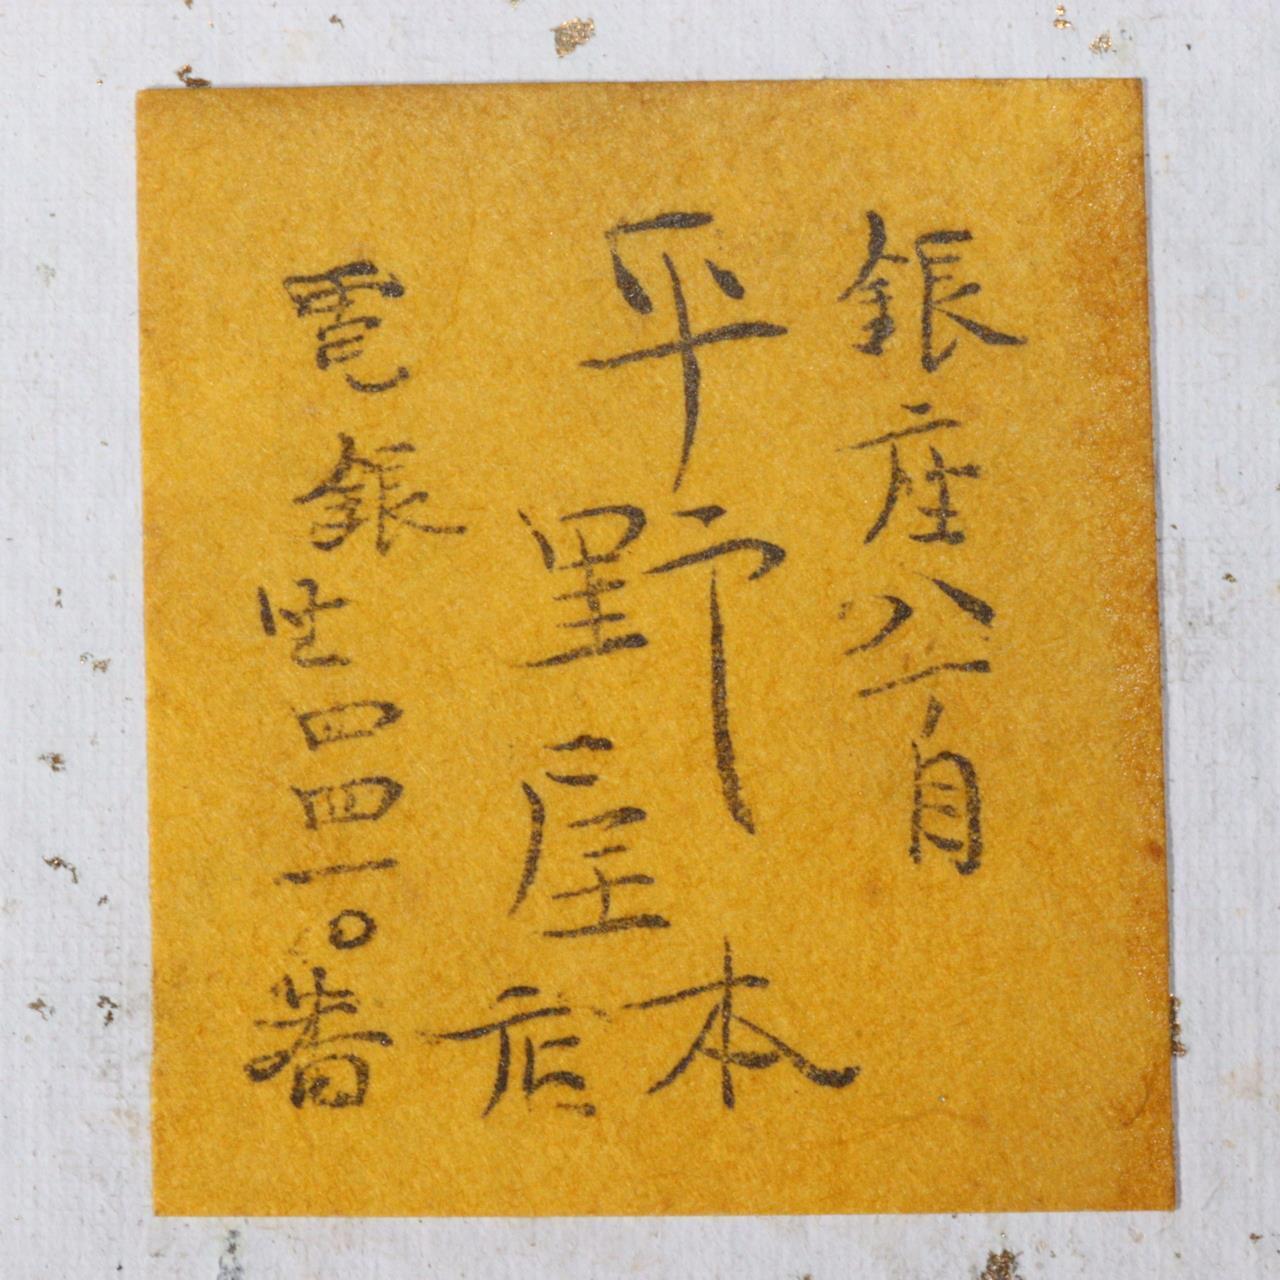 銀座八丁目
平野屋本店
電銀坐四四一〇番